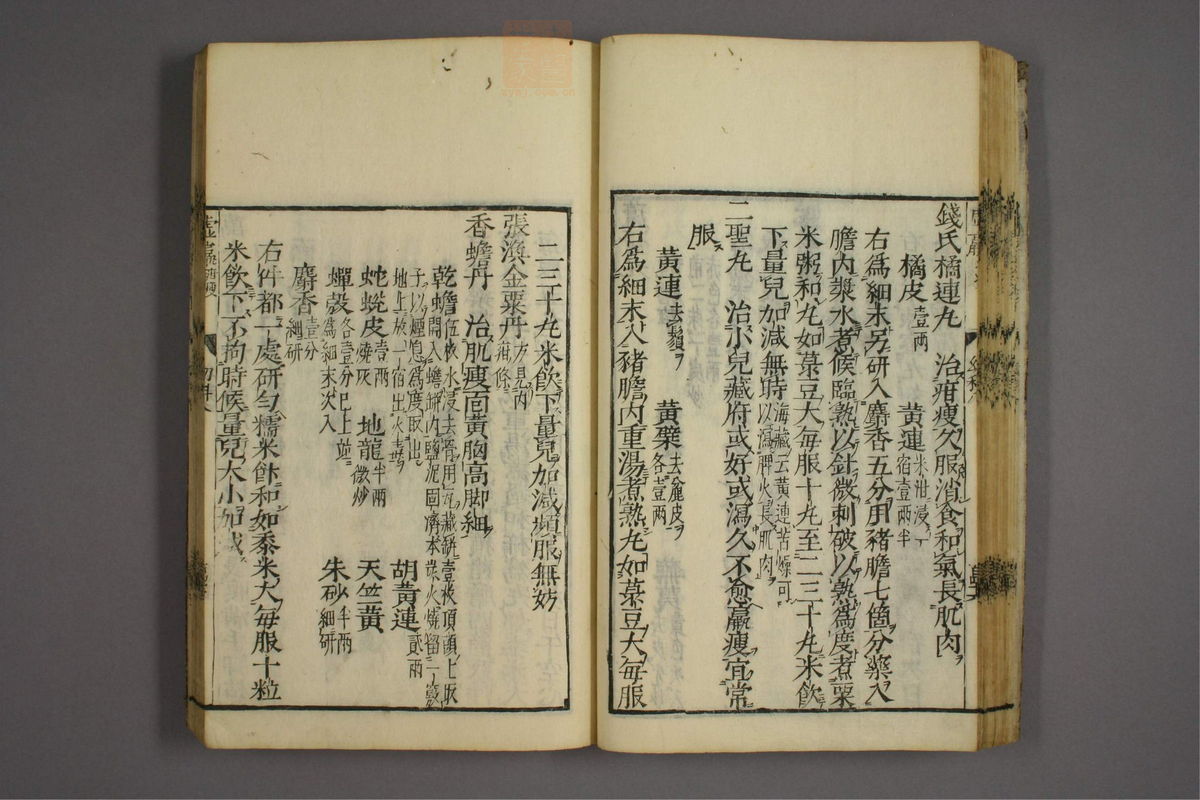 錢氏橘連丸 治疳瘦久服消食和氣長肌肉
橘皮壹兩 黃連米泔浸一宿壹兩半
右為細末另研入麝香五分用豬膽七箇分藥入
膽內漿水煮候臨熟以針微刺破以熟為度煮粟
米粥和丸如菉豆大每服十丸至二三十丸米飲
下量兒加減無時海藏云黃連苦燥可以瀉脾火長肌肉
二聖丸 治小兒藏府或好或瀉久不愈羸瘦宜常
服
黃連去鬚 黃檗去麄皮各壹兩
右為細末入豬膽內重湯煮熟丸如菉豆大每服
二三十丸米飲下量兒加減頻服無妨
張渙金粟丹方見丙
香蟾丹 治肌瘦面黃胸高脚細
乾蟾伍枚水浸去骨用瓦藏缾壹枚頂頭上取開入蟾缾內鹽泥固濟木炭火燒留一竅子以煙息為度取出地上放一宿出火毒 胡黃連貳兩
蛇蛻皮壹兩燒灰 地龍半兩微炒 天竺黃
蟬殼各壹分已上並為細末次入 朱砂半兩細研
麝香壹分細研
右件都一處研勻糯米飯和如黍米大每服十粒
米飲下不拘時候量兒大小加減